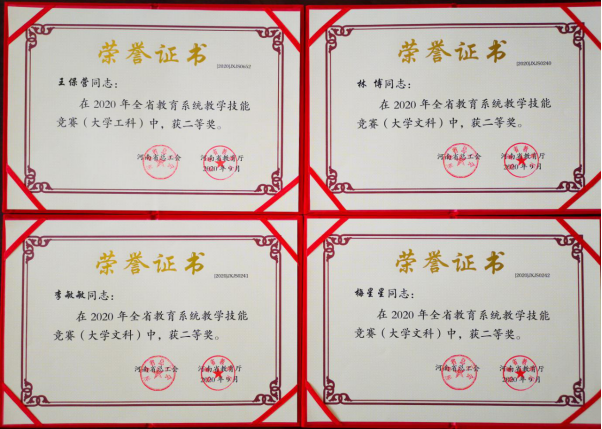 荣誉证书
[2020]JXJS0632
王保营同志：
在 2020 年全省教育系统教学技能
竞赛（大学工科）中，获二等奖。
河南省总工会 河南省教育厅
2020 年 9 月
荣誉证书
[2020]JXJS0240
林 博同志：
在 2020 年全省教育系统教学技能
竞赛（大学文科）中，获二等奖。
河南省总工会 河南省教育厅
2020 年 9 月
荣誉证书
[2020]JXJS0241
李敏敏同志：
在 2020 年全省教育系统教学技能
竞赛（大学文科）中，获二等奖。
河南省总工会 河南省教育厅
2020 年 9 月
荣誉证书
[2020]JXJS0242
梅星星同志：
在 2020 年全省教育系统教学技能
竞赛（大学文科）中，获二等奖。
河南省总工会 河南省教育厅
2020 年 9 月